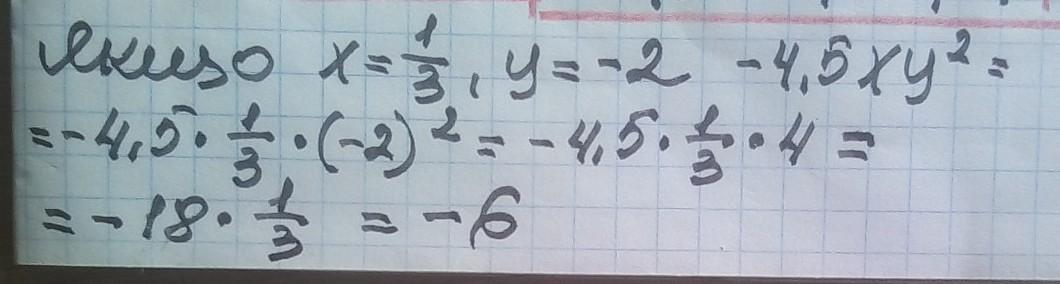 Якщо x = 1/3, y = -2 -4,5xy² =
= -4,5 · 1/3 · (-2)² = -4,5 · 1/3 · 4 =
= -18 · 1/3 = -6